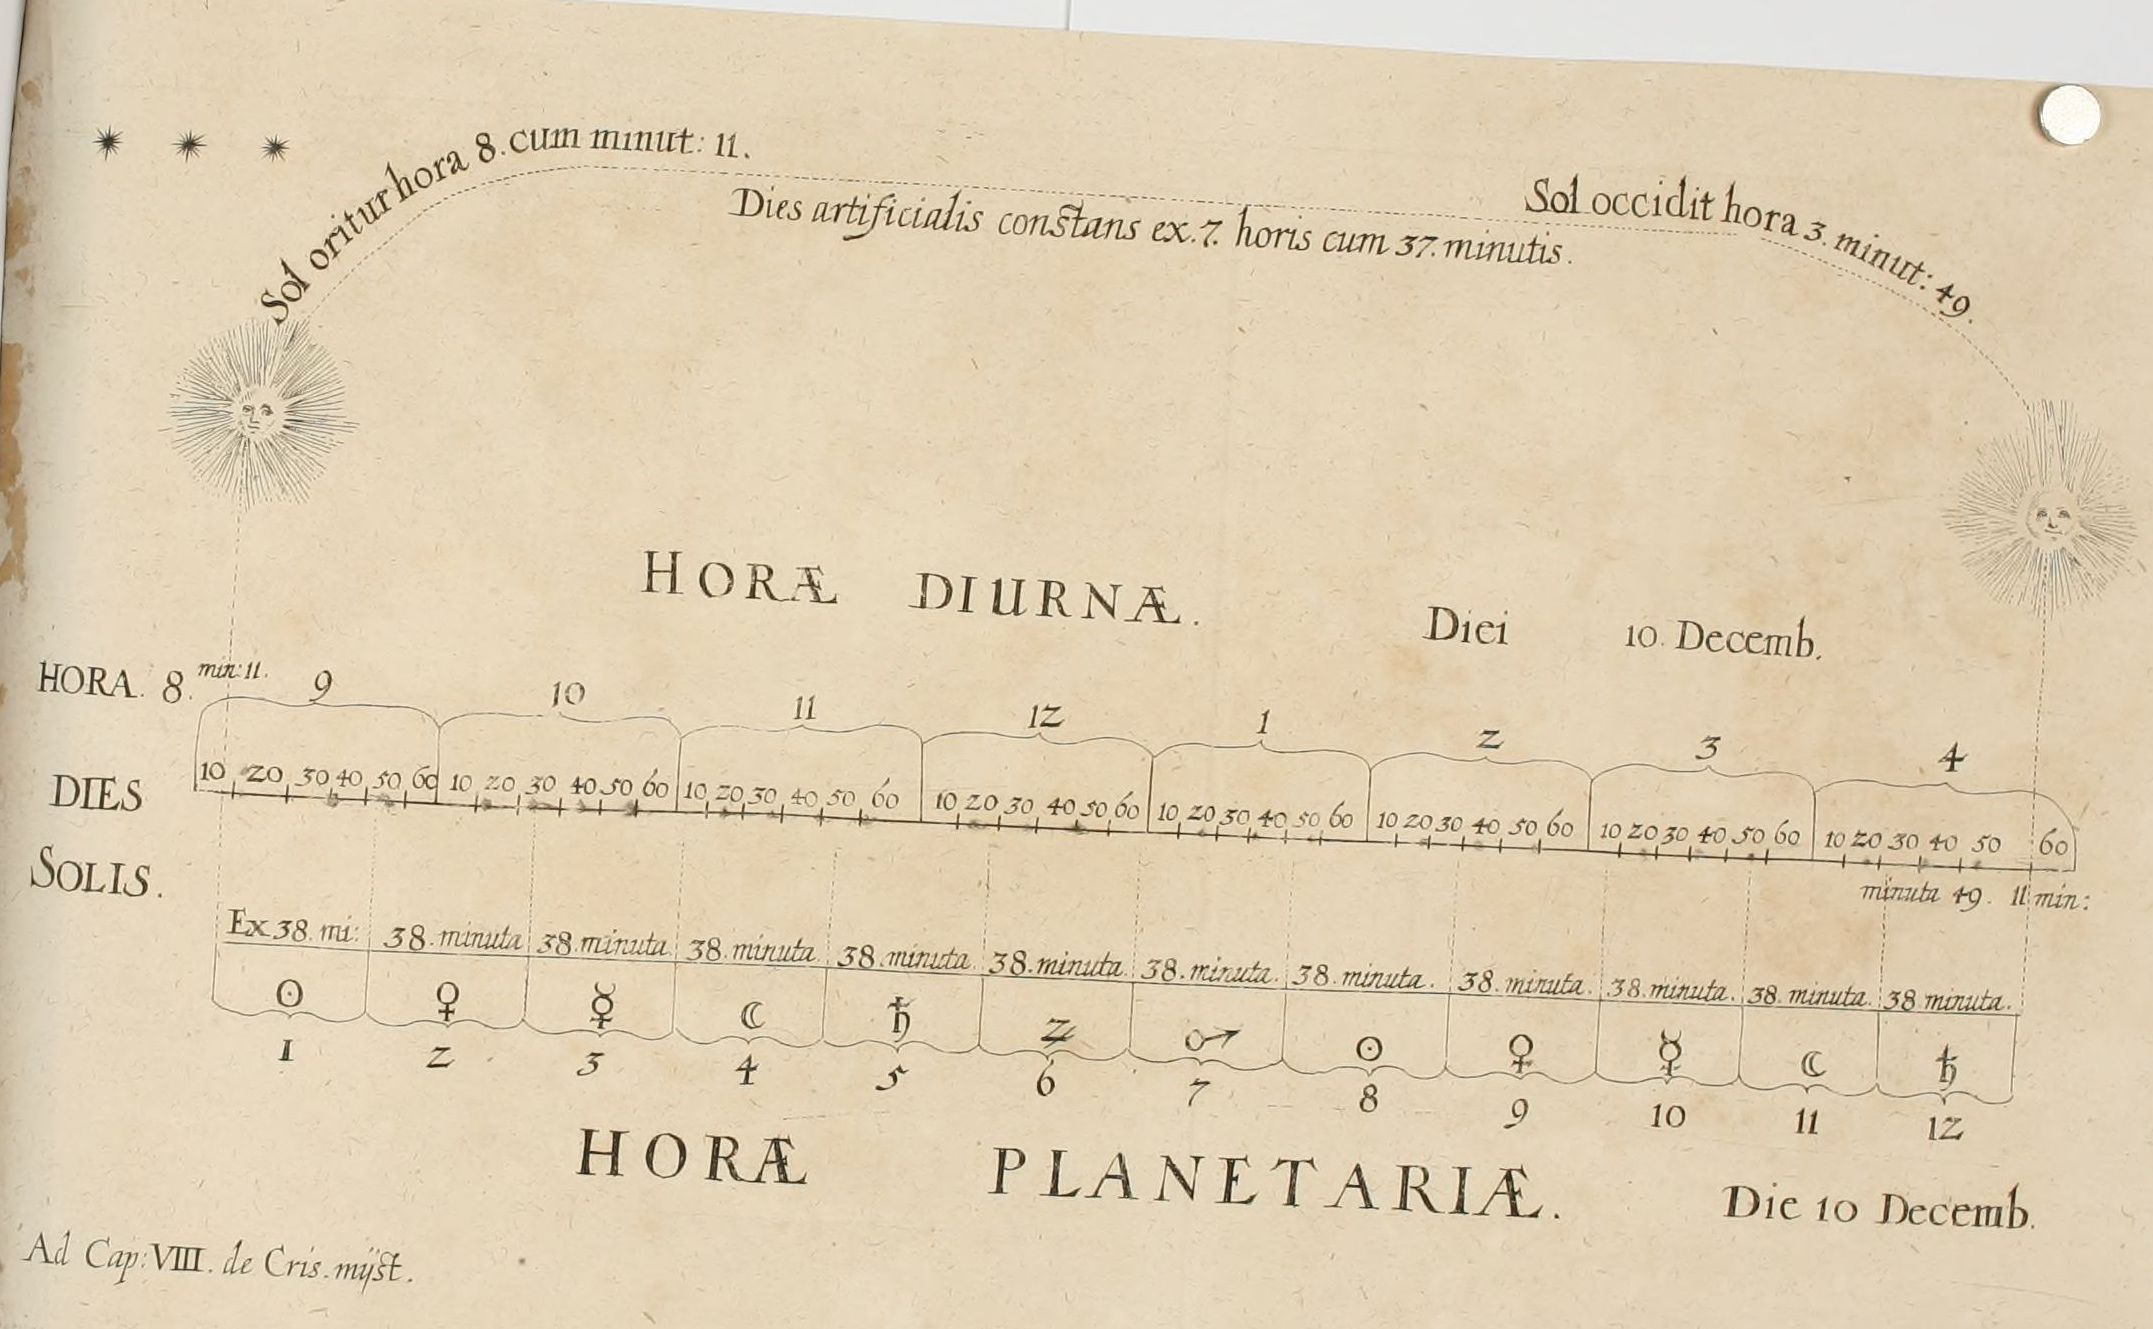 Sol oritur hora 8. cum minut: 11.
Sol occidit hora 3. minut: 49.
Dies artificialis constans ex. 7. horis cum 37. minutis.
HORÆ DIURNÆ. Diei 10. Decemb.
HORA. 8. min: 11. 9 10 11 12 1 2 3 4
DIES
10 20 30 40 50 60 10 20 30 40 50 60 10 20 30 40 50 60 10 20 30 40 50 60 10 20 30 40 50 60 10 20 30 40 50 60 10 20 30 40 50 60 10 20 30 40 50 60
SOLIS.
minuta 49. 11 min:
Ex 38. mi: 38. minuta 38. minuta. 38. minuta. 38. minuta. 38. minuta. 38. minuta. 38. minuta. 38. minuta. 38. minuta. 38. minuta. 38 minuta.
☉ ♀ ☿ ☾ ♄ ♃ ♂ ☉ ♀ ☿ ☾ ♄
1 2 3 4 5 6 7 8 9 10 11 12
HORÆ PLANETARIÆ. Die 10 Decemb.
Ad Cap: VIII. de Cris. mÿst.